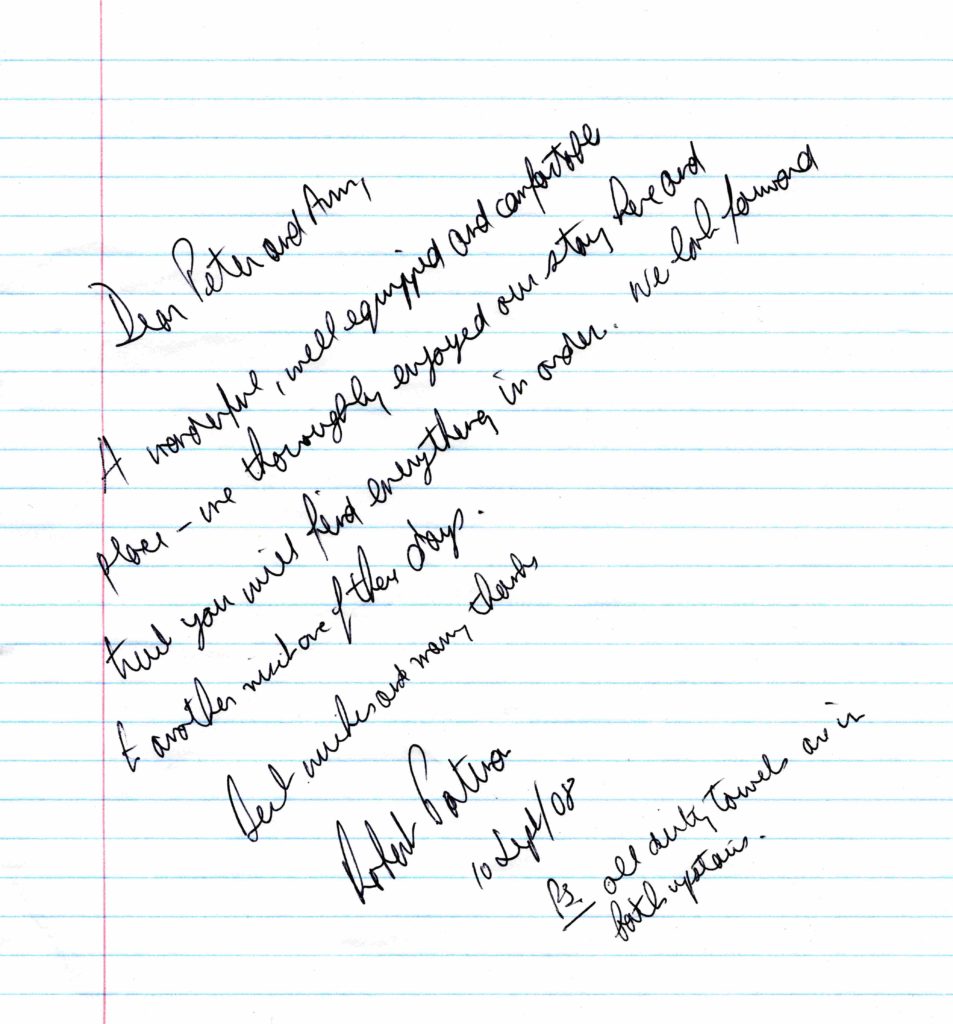 Dear Peter and Ann,
A wonderful, well equipped and comfortable
place - we thoroughly enjoyed our stay here and
trust you will find everything in order. We look forward
to another visit one of these days.
Best wishes and many thanks
Robert
10 Sept/08
PS all dirty towels are in
bath upstairs.